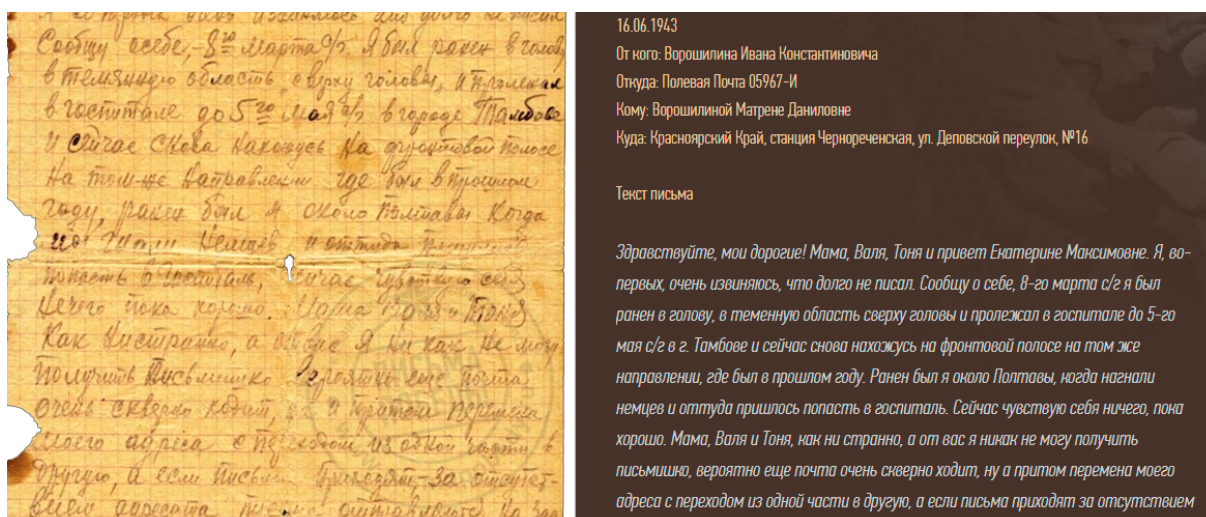 извиняюсь что долго не писал
Сообщу о себе, - 8го марта с/г. Я был ранен в голову
в теменную область сверху головы, и пролежал
в госпитале до 5го мая с/г в городе Тамбове
и сейчас снова нахожусь на фронтовой полосе
на том-же направлении где был в прошлом
году, ранен был я около Полтавы когда
немцев и оттуда пришлось
попасть в госпиталь, сейчас чувствую себя
нечего пока хорошо. Мама Валя и Тоня
как нистранно, а от вас я ни как не могу
получить письмишко вероятно еще почта
очень скверно ходит, ну и притом перемена
моего адреса с переходом из одной части в
другую, а если письма приходят за отсутст-
вием адресата
16.06.1943
От кого: Ворошилина Ивана Константиновича
Откуда: Полевая Почта 05967-И
Кому: Ворошилиной Матрене Даниловне
Куда: Красноярский Край, станция Чернореченская, ул. Деповской переулок, №16
Текст письма
Здравствуйте, мои дорогие! Мама, Валя, Тоня и привет Екатерине Максимовне. Я, во-
первых, очень извиняюсь, что долго не писал. Сообщу о себе, 8-го марта с/г я был
ранен в голову, в теменную область сверху головы и пролежал в госпитале до 5-го
мая с/г в г. Тамбове и сейчас снова нахожусь на фронтовой полосе на том же
направлении, где был в прошлом году. Ранен был я около Полтавы, когда нагнали
немцев и оттуда пришлось попасть в госпиталь. Сейчас чувствую себя ничего, пока
хорошо. Мама, Валя и Тоня, как ни странно, а от вас я никак не могу получить
письмишко, вероятно еще почта очень скверно ходит, ну а притом перемена моего
адреса с переходом из одной части в другую, а если письма приходят за отсутствием